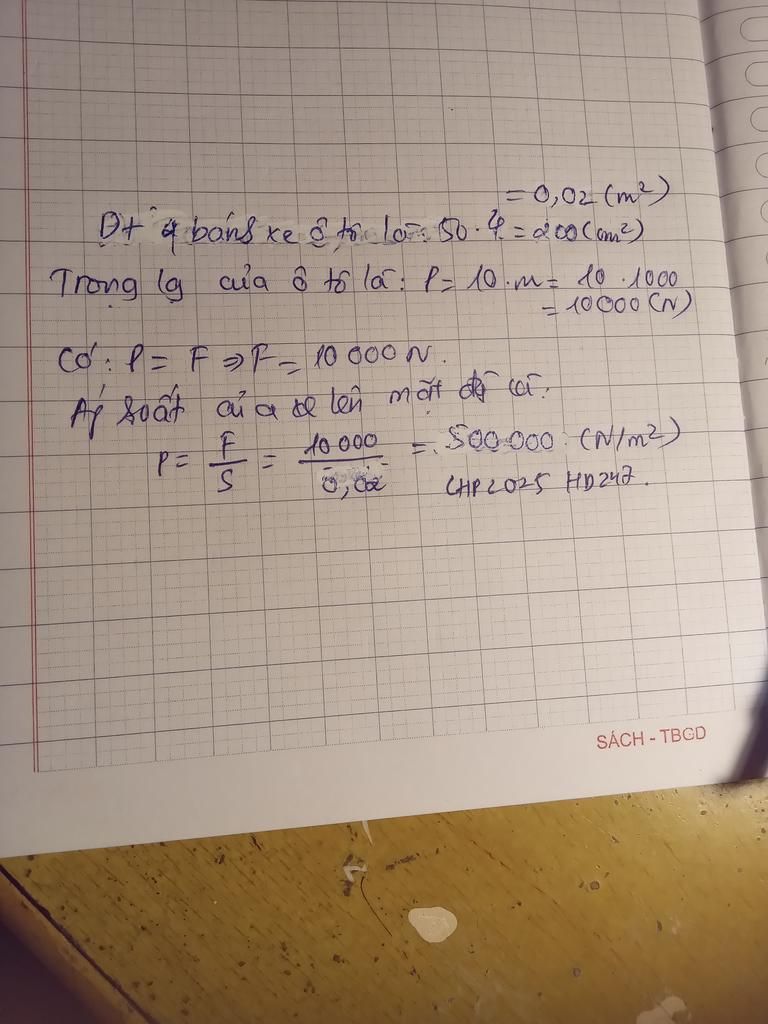 = 0,02 (m²)
Dt 4 bánh xe ô tô là: 50 . 4 = 200 (cm²)
Trọng lg của ô tô là: P = 10 . m = 10 . 1000
= 10000 (N)
Có: P = F => F = 10 000 N.
Áp suất của xe lên mặt là:
P = F/S = 10 000/0,02 = 500 000 (N/m²)
CHP2025 HD247.
SÁCH - TBGD